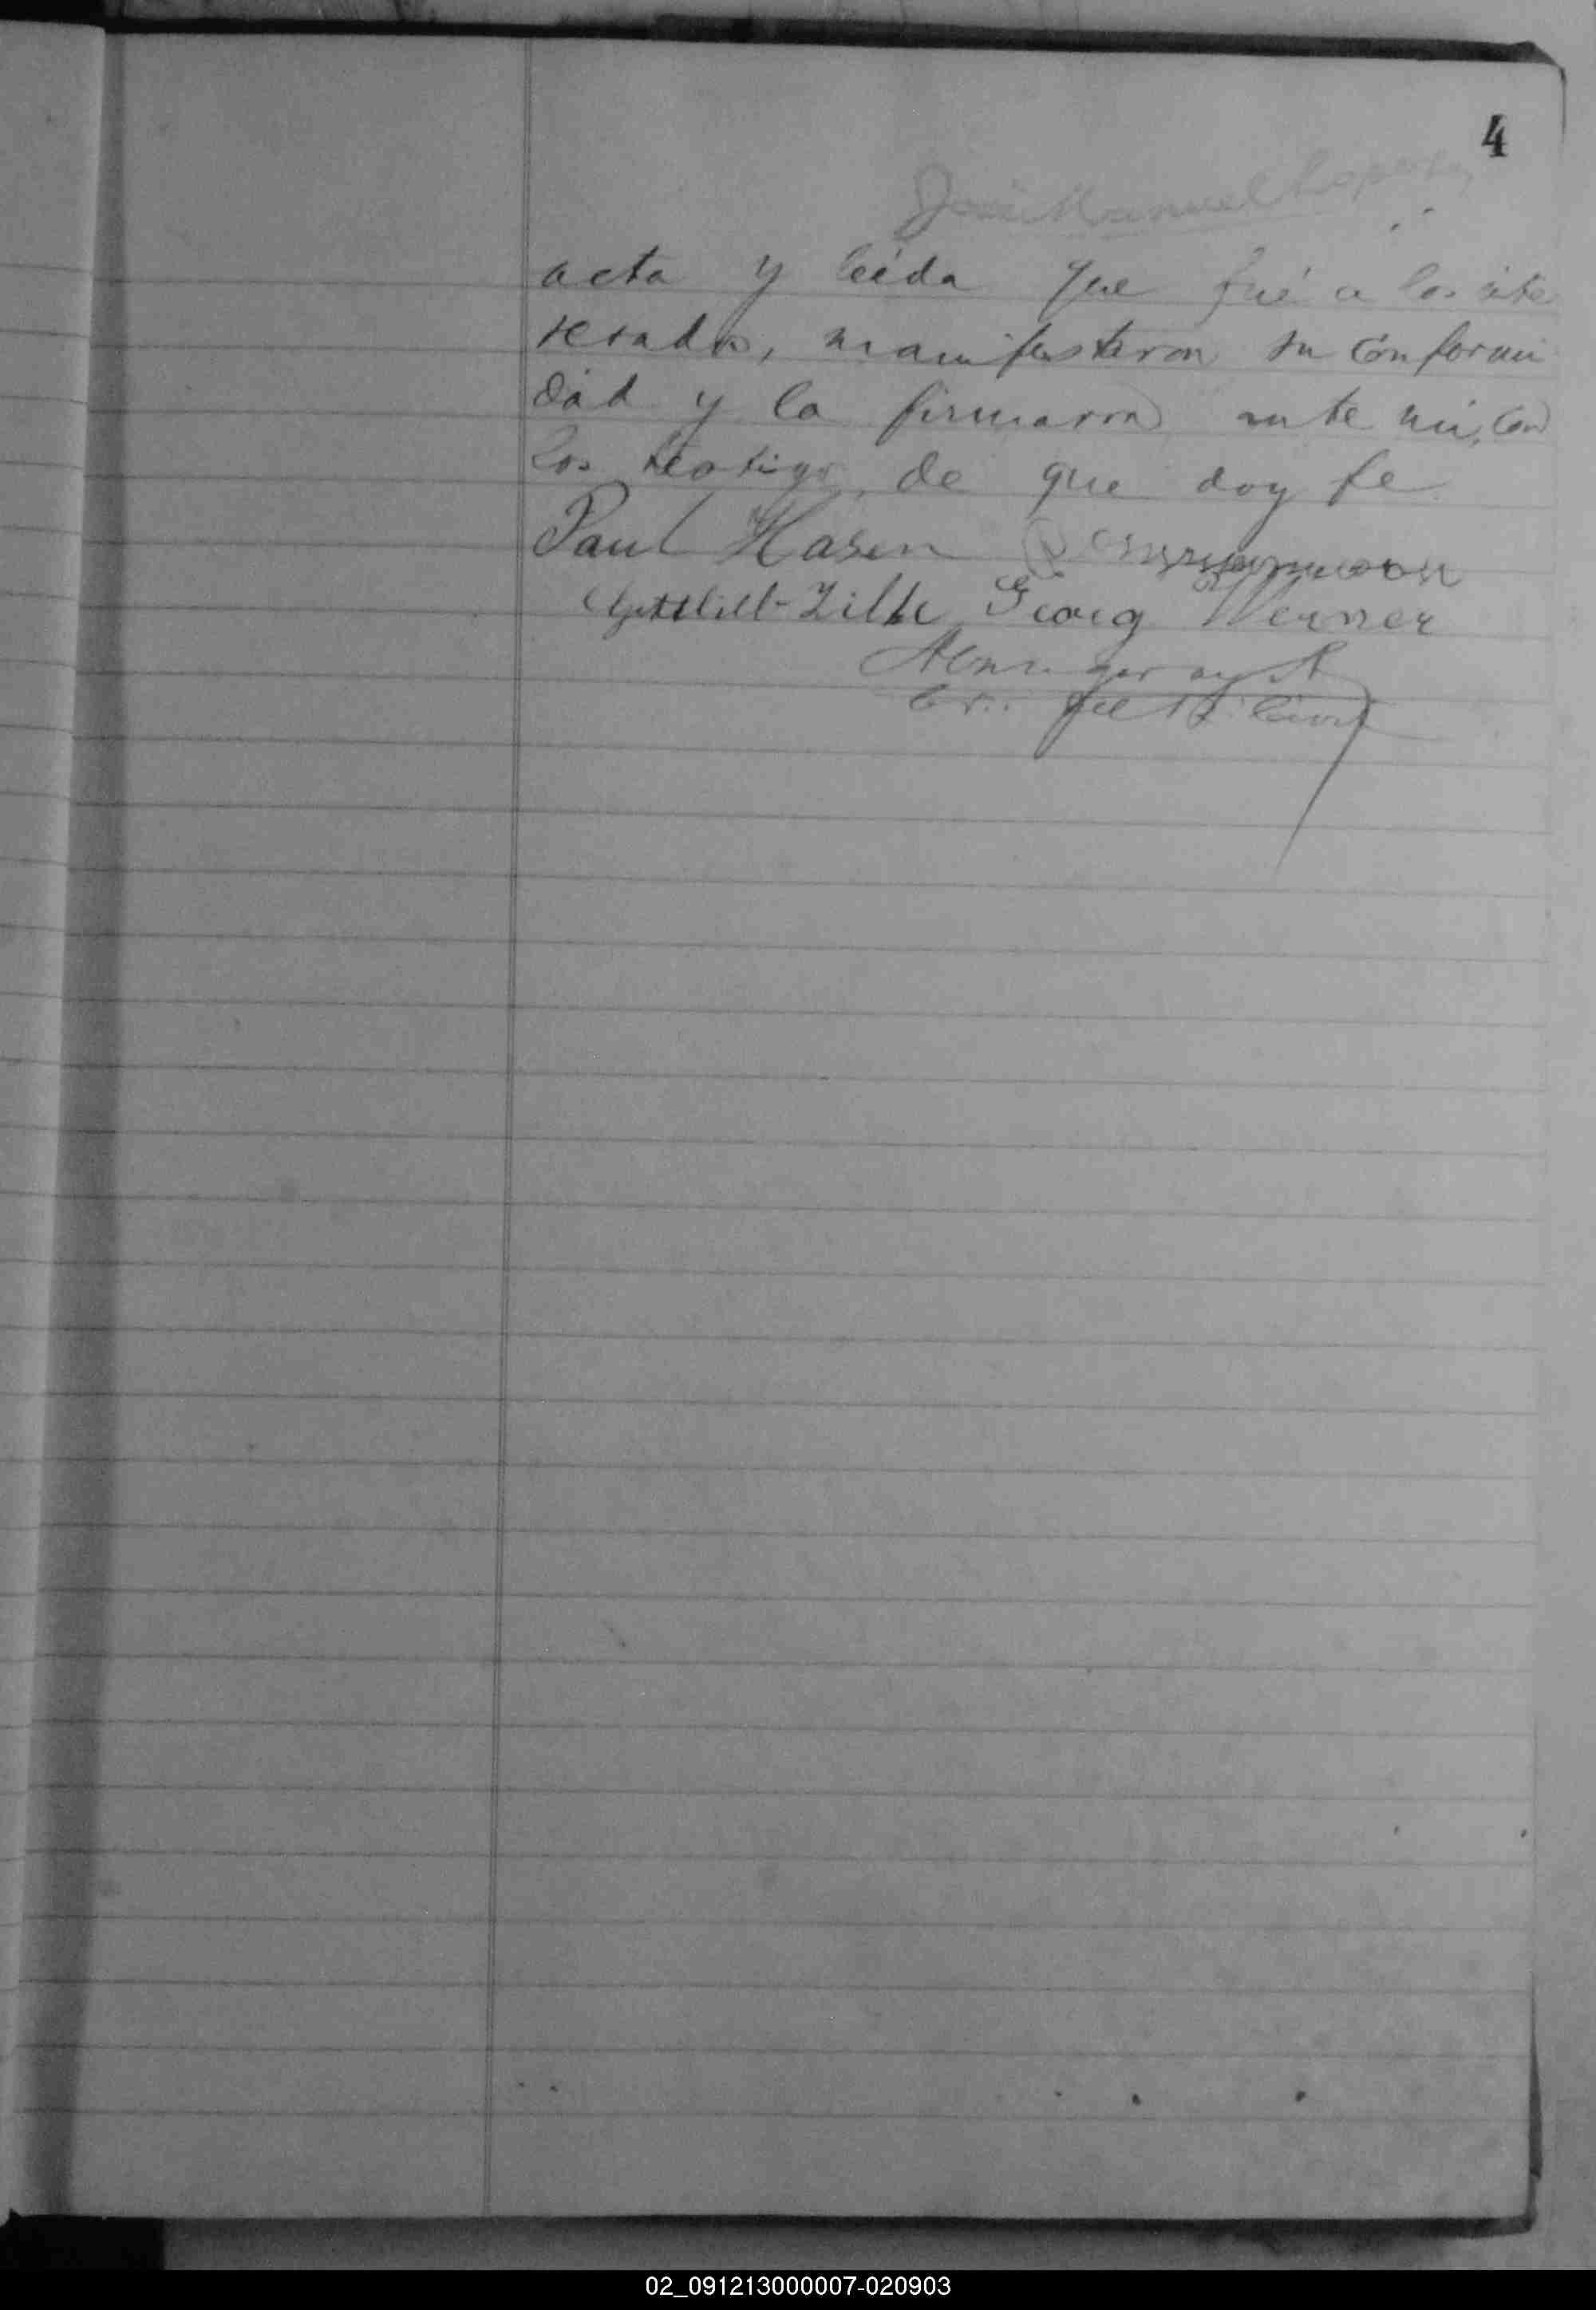 4
José Manuel
acta y leida que fué a los inte
resados, manifestaron su conformi
dad y la firmaron ante mi, con
los testigos, de que doy fe
Paul Hasen
Gottlieb Zilke Georg Werner
02_091213000007-020903